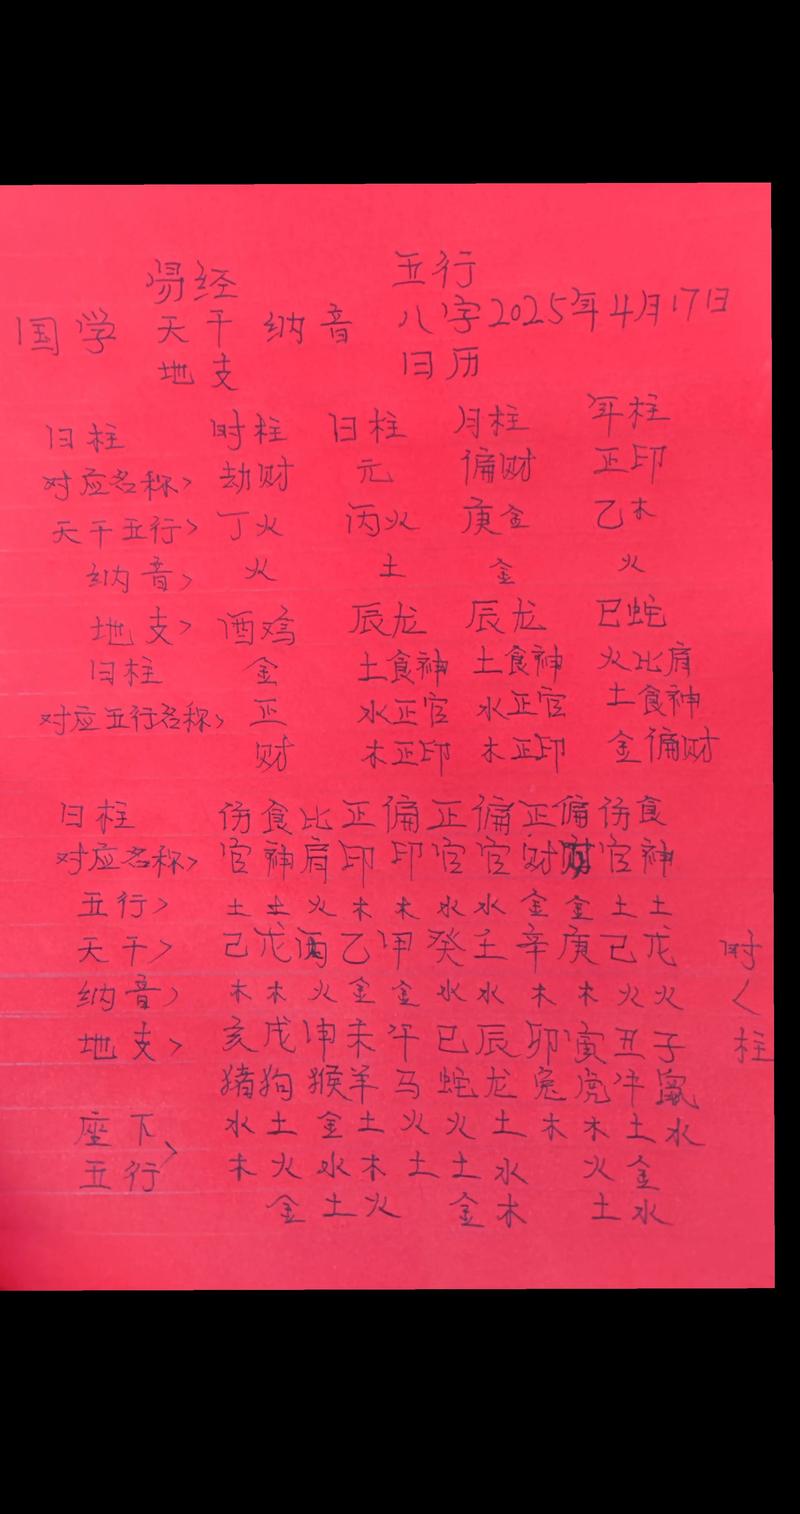 易经 五行
国学 天干 纳音 八字2025年4月17日
地支 日历
日柱 时柱 日柱 月柱 年柱
对应名称> 劫财 元 偏财 正印
天干五行> 丁火 丙火 庚金 乙木
纳音> 火 土 金 火
地支> 酉鸡 辰龙 辰龙 巳蛇
日柱 金 土食神 土食神 火比肩
对应五行名称> 正 水正官 水正官 土食神
财 木正印 木正印 金偏财
日柱 伤食比正偏正偏正偏伤食
对应名称> 官神肩印印官官财财官神
五行> 土土火木木水水金金土土
天干> 己戊丙乙甲癸壬辛庚己戊 时
纳音> 木木火金金水水木木火火 く
地支> 亥戌申未午巳辰卯寅丑子 柱
猪狗猴羊马蛇龙兔虎牛鼠
座下 水土金土火火土木木土水
五行> 木火水木土土水火金
金土火金木土水